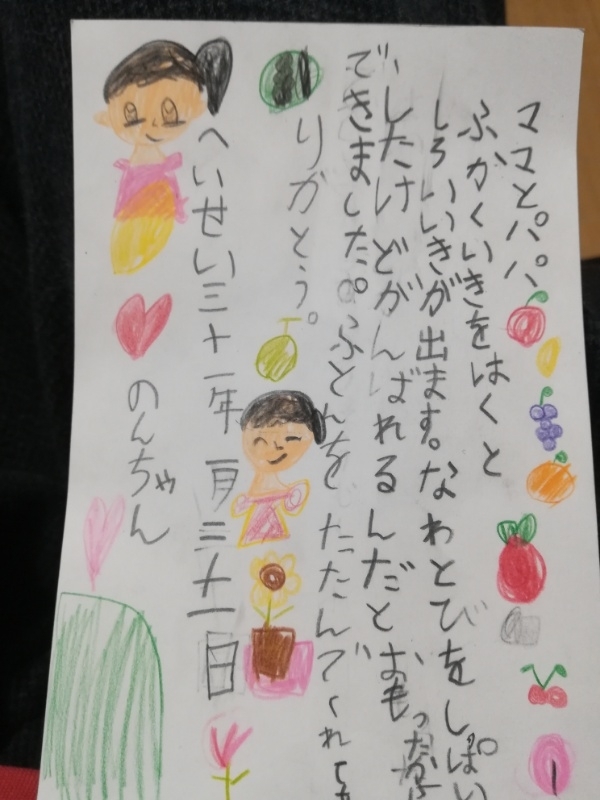 ママとパパ、
ふかくいきをはくと
しろいいきが出ます。なわとびをしぱい
したけどがんばれるんだとおもった
できました。ふとんをたたんでくれて
りがとう。
へいせい三十一年一月三十一日
のんちゃん